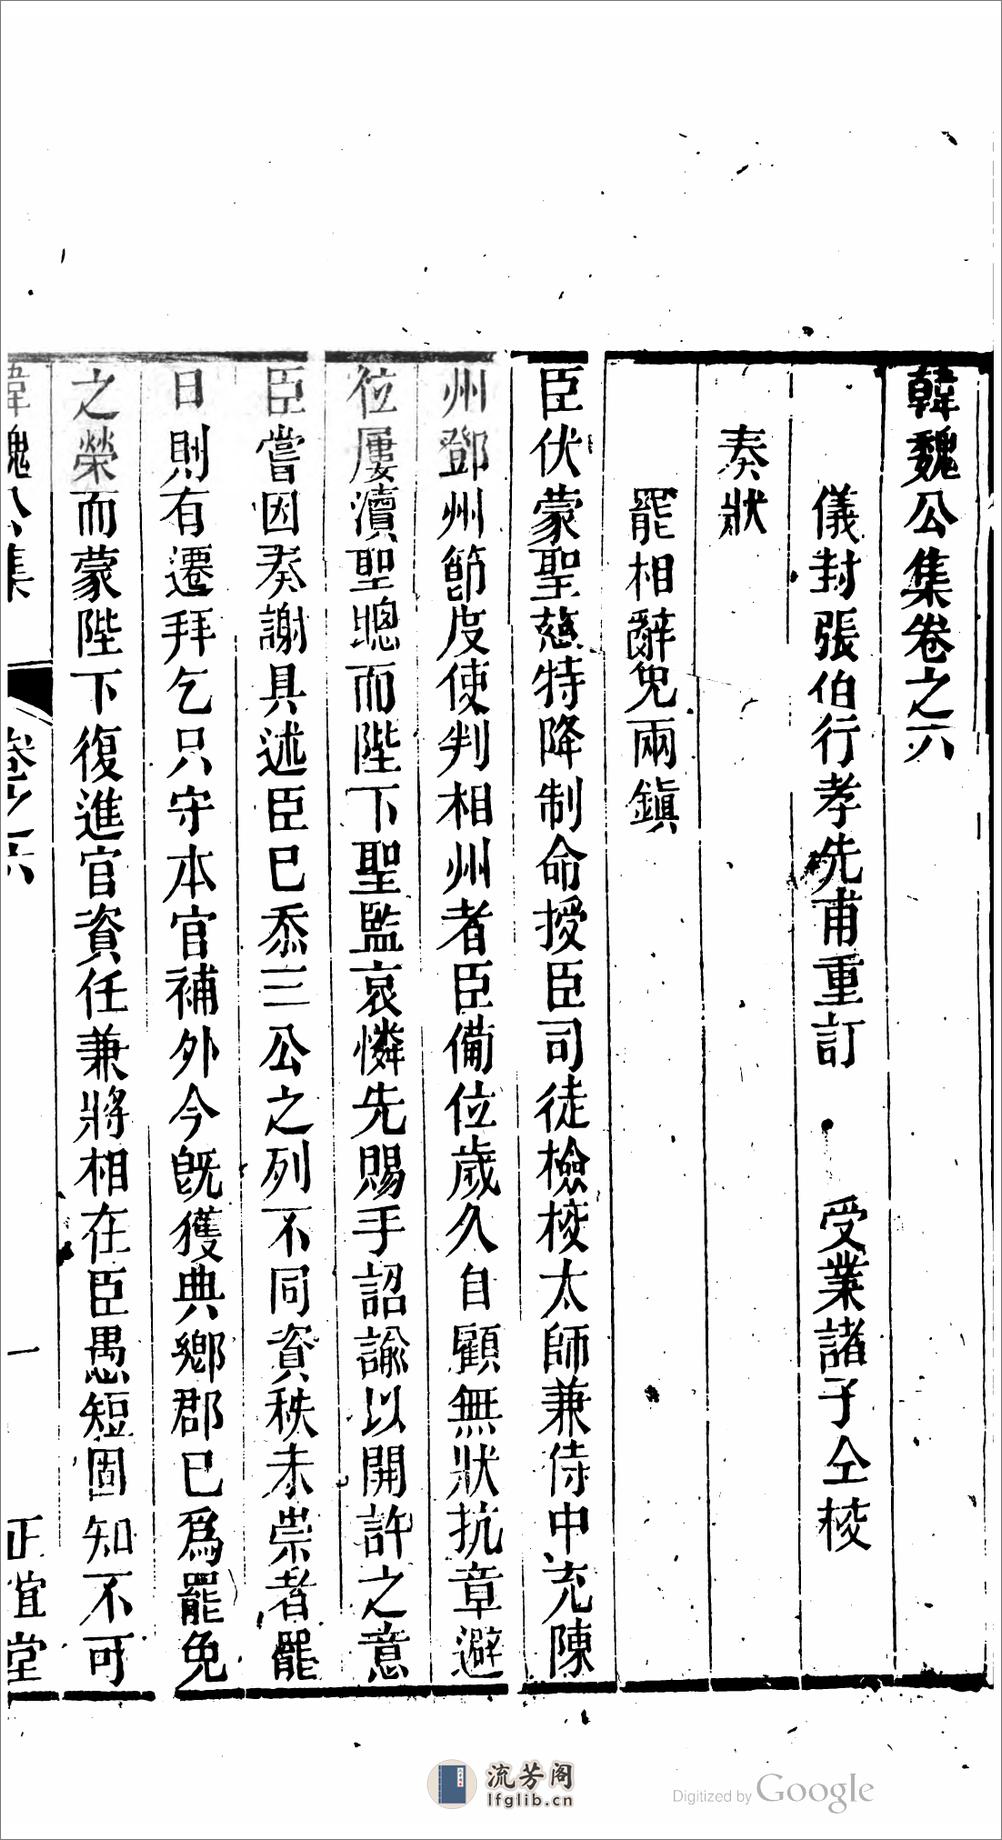 韓魏公集卷之六
儀封張伯行孝先甫重訂 受業諸子仝校
奏狀
罷相辭免兩鎮
臣伏蒙聖慈特降制命授臣司徒檢校太師兼侍中充陳
州鄧州節度使判相州者臣備位歲久自顧無狀抗章避
位屢瀆聖聰而陛下聖監哀憐先賜手詔諭以開許之意
臣嘗因奏謝具述臣已忝三公之列不同資秩未崇者罷
日則有遷拜乞只守本官補外今旣獲典鄉郡已爲罷免
之榮而蒙陛下復進官資任兼將相在臣愚短固知不可
韓魏公集 卷之六 一 正誼堂
流芳阁
lfglib.cn
Digitized by Google